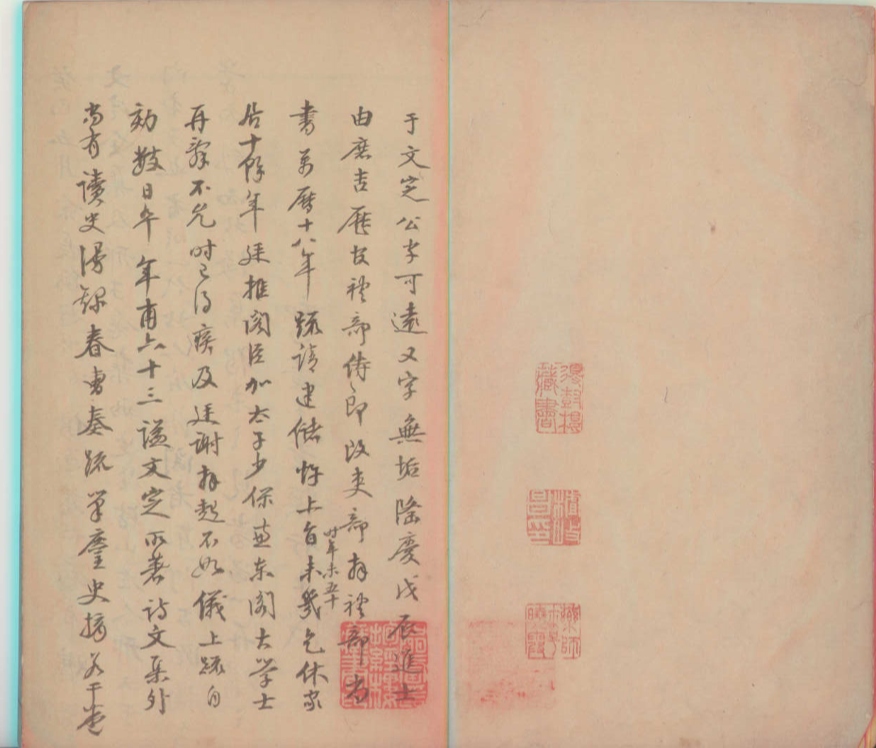 于文定公字可遠又字無垢隆慶戊辰進士
由庶吉歷官禮部侍郎改吏部拜禮部尚
書萬曆十八年疏請建儲忤上旨未幾乞休家
時年未五十
居十餘年廷推閣臣加太子少保兼東閣大學士
再辭不允時已得疾及廷謝拜起不如儀上疏自
劾數日卒年甫六十三諡文定所著詩文集外
尚有讀史漫錄春曹奏疏筆麈史摘若干卷
藏書